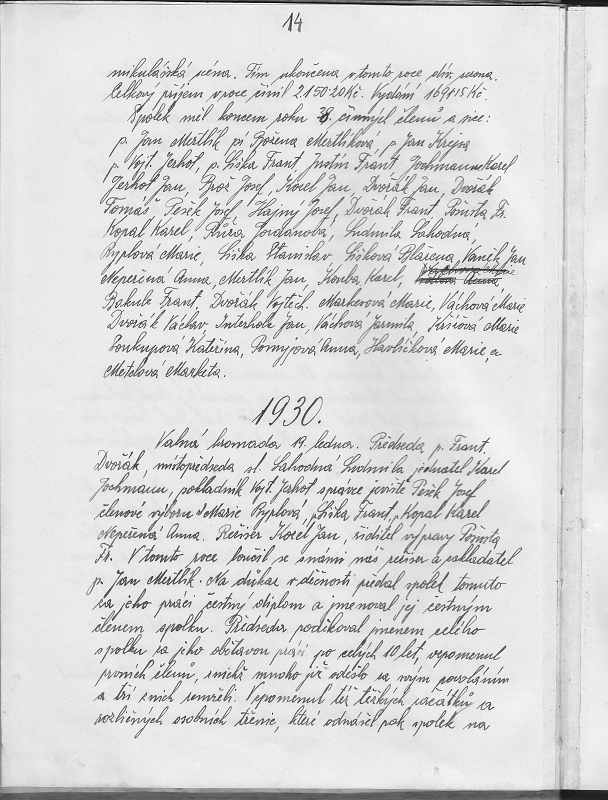 14
mikulášská věna. Tím ukončena v tomto roce div. sezona.
Celkový příjem v roce činil 2150·20 Kč. Vydání 1698·15 Kč.
Spolek měl koncem roku 38 činných členů a sice:
p. Jan Mertlík pí Božena Mertlíková, p. Jan Krejsa
p. Vojt. Jerhot, p. Liška Frant. Justin Frant. Jochmann Karel
Jerhot Jan, Brož Josef, Korel Jan, Dvořák Jan, Dvořák
Tomáš, Pešek Josef, Hajný Josef, Dvořák Frant. Pošusta Fr.
Kopal Karel, Růža Jordanová, Ludmila Lahodná,
Ryplová Marie, Liška Stanislav, Lišková Blažena, Vaněk Jan
Nepeřená Anna, Mertlík Jan, Kouba Karel,
Bakule Frant. Dvořák Vojtěch. Markerová Marie, Váchová Marie
Dvořák Václav, Interholz Jan, Váchová Jarmila, Marie
Soukupová Kateřina, Pomyjová Anna, Havlíčková Marie, a
Metelová Marketa.
1930.
Valná hromada 19. ledna. Předseda p. Frant.
Dvořák, místopředseda sl. Lahodná Ludmila jednatel Karel
Jochmann, pokladník Vojt. Jerhot správce jeviště Pešek Josef
členové výboru sl. Marie Ryplová, p. Liška Frant., Kopal Karel
Nepeřená Anna. Režiser Korel Jan, řiditel výpravy Pošusta
Fr. V tomto roce loučil se s námi náš režiser a zakladatel
p. Jan Mertlík. Na důkaz vděčnosti předal spolek tomuto
za jeho práci čestný diplom a jmenoval jej čestným
členem spolku. Předseda poděkoval jmenem celého
spolku za jeho obětavou práci po celých 10 let, vzpomenul
prvních členů, z nichž mnoho již odešlo za svým povoláním
a tři z nich zemřeli. Vzpomenul též těžkých začátků a
rozličných osobních třenic, které odnášel pak spolek na